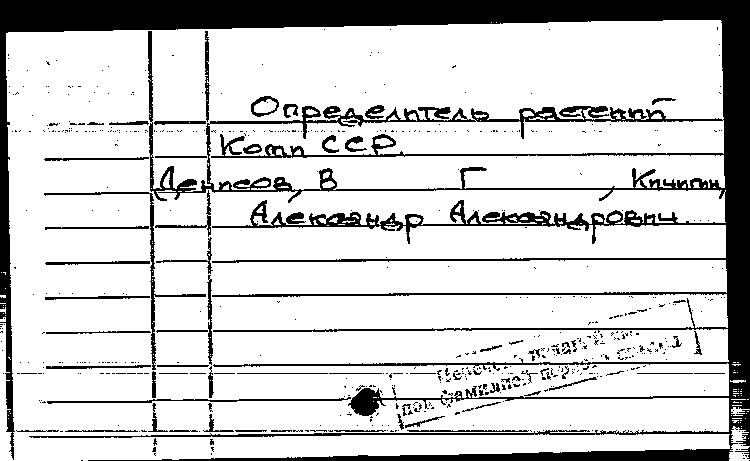 Определитель растений
Коми ССР.
Денисов, В Г , Кичигин,
Александр Александрович.
под фамилией